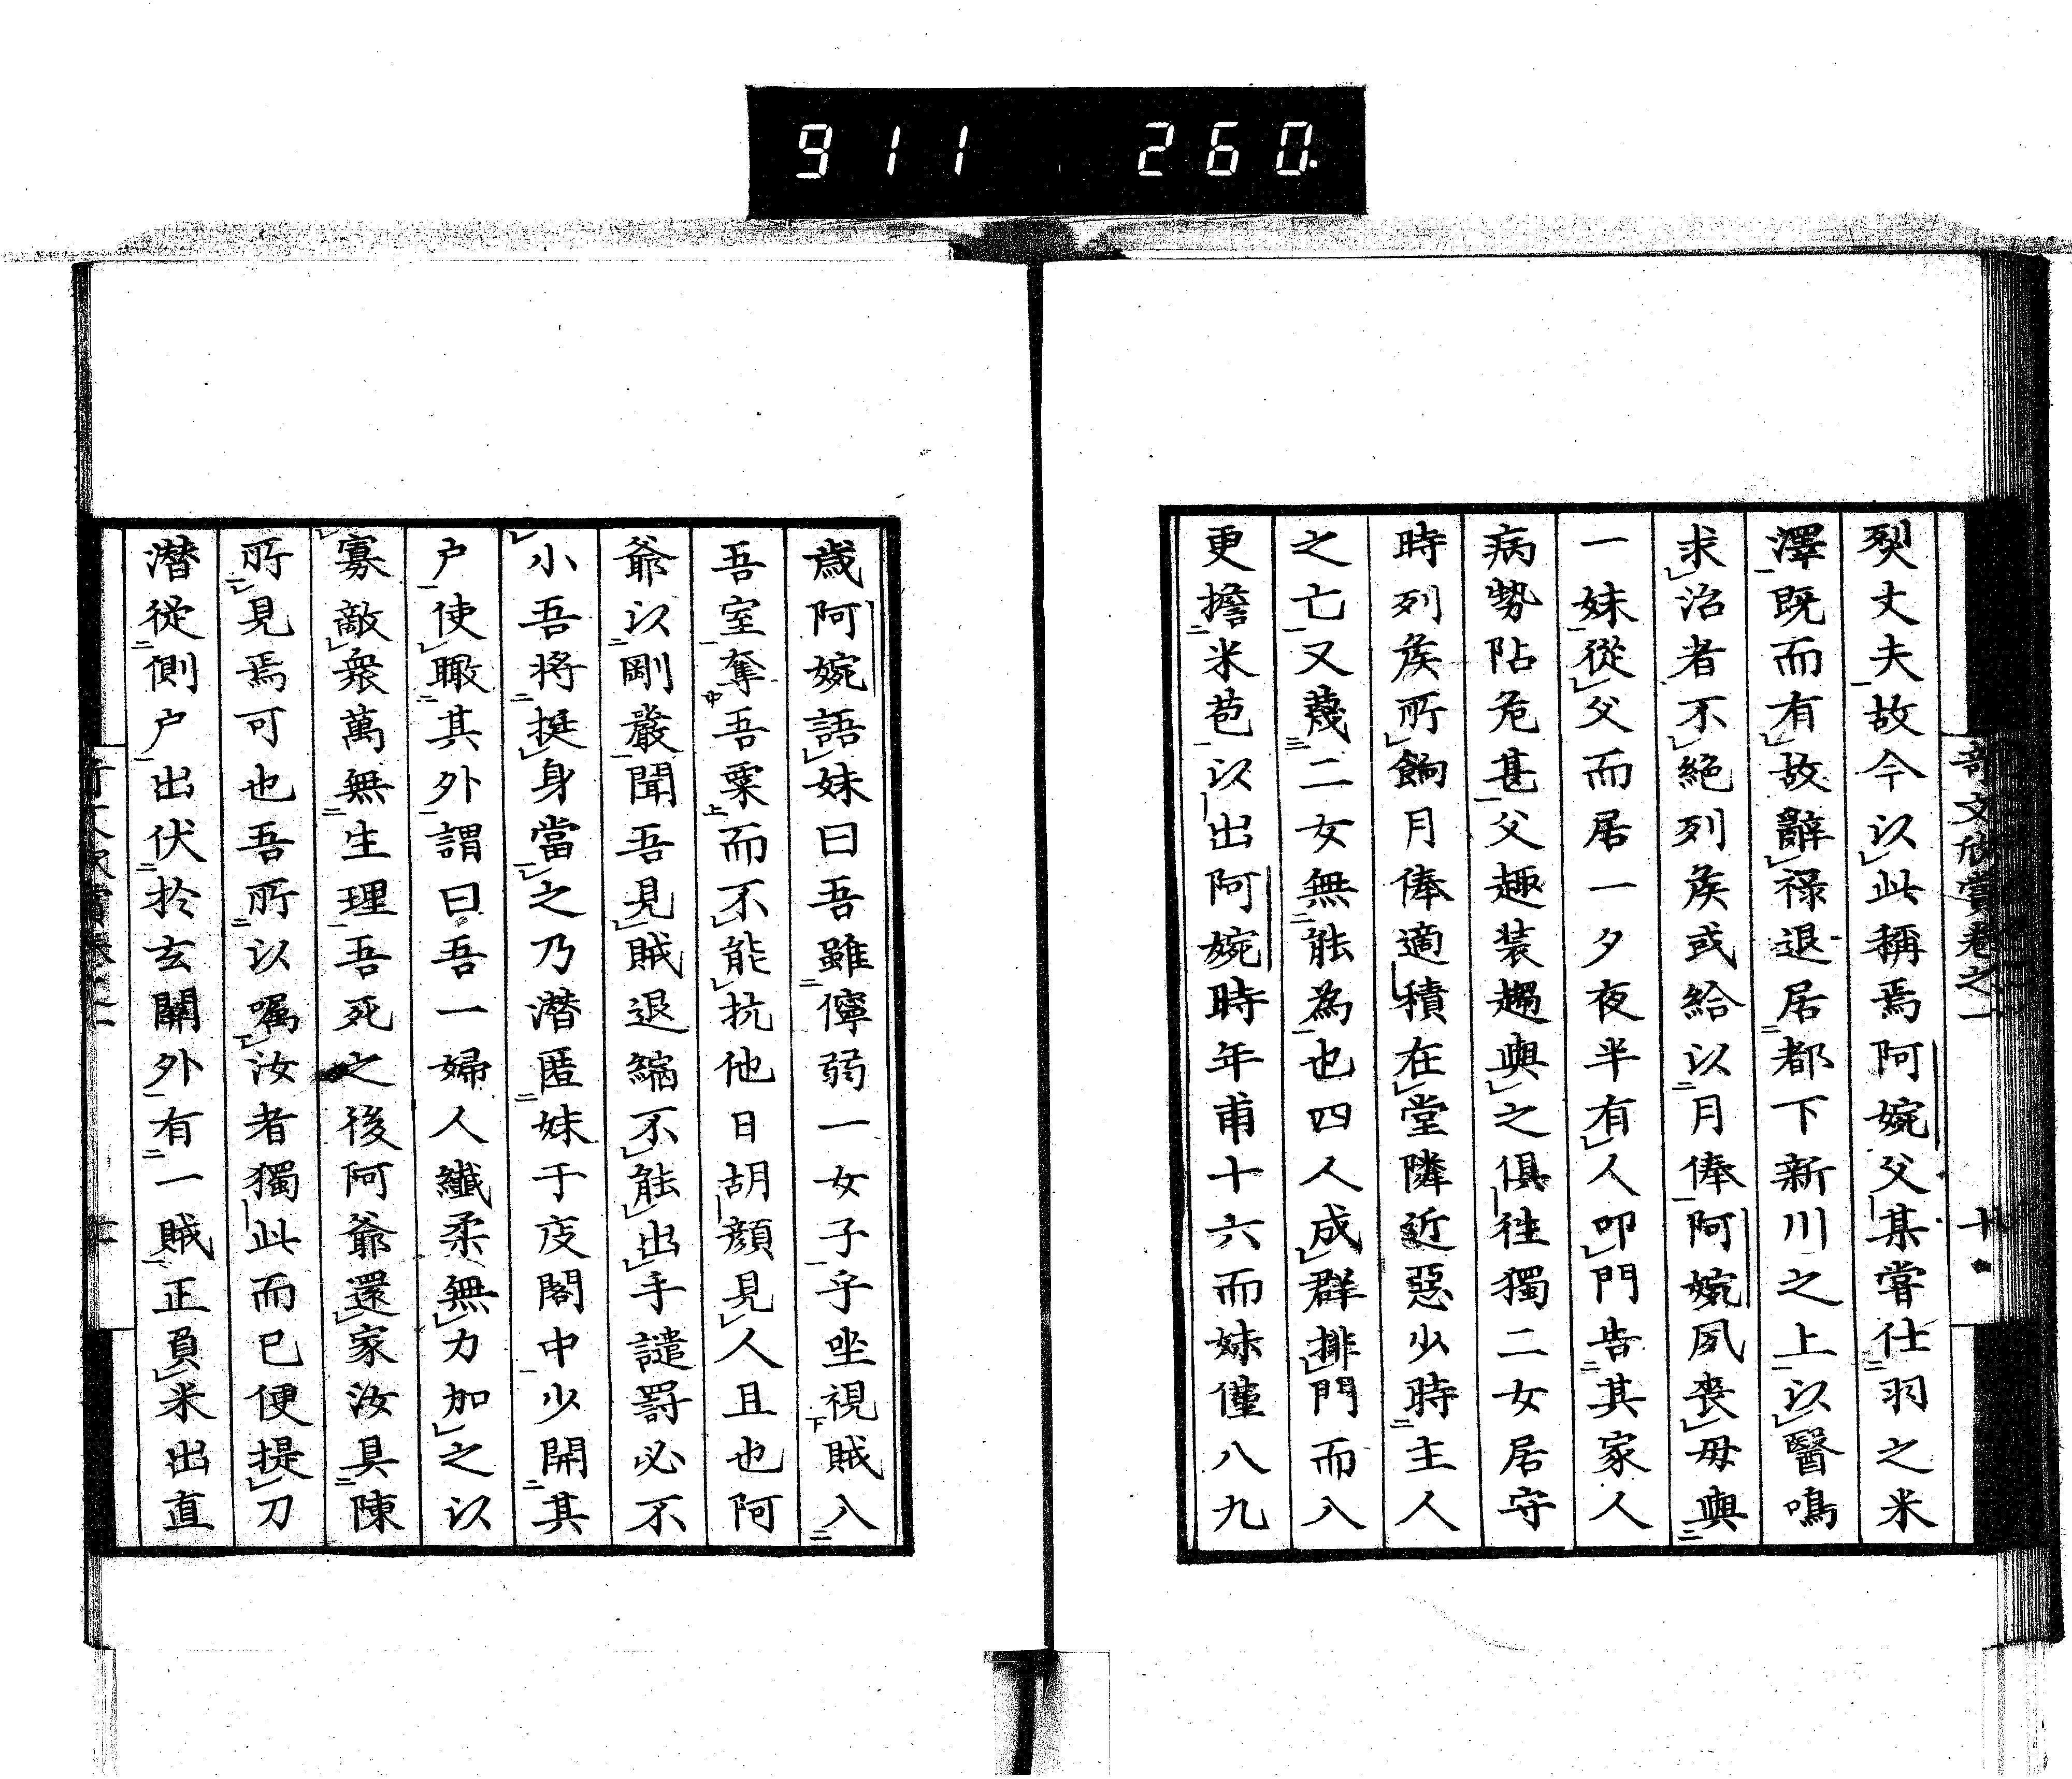 911 260.
奇文欣賞巻之一 十
烈丈夫故今以此稱焉阿婉父某嘗仕羽之米
澤既而有故辭禄退居都下新川之上以醫鳴
求治者不絕列矦或給以月俸阿婉夙喪母與
一妹從父而居一夕夜半有人叩門告其家人
病勢阽危甚父趣装趨與之俱往獨二女居守
時列矦所餉月俸適積在堂隣近惡少時主人
之亡又蔑二女無能為也四人成群排門而入
更擔米苞以出阿婉時年甫十六而妹僅八九
歳阿婉語妹曰吾雖儜弱一女子乎坐視賊入
吾室奪吾粟而不能抗他日胡顔見人且也阿
爺以剛嚴聞吾見賊退縮不能出手譴罸必不
小吾將挺身當之乃潜匿妹于庋閣中少開其
户使瞰其外謂曰吾一婦人纖柔無力加之以
寡敵衆萬無生理吾死之後阿爺還家汝具陳
所見焉可也吾所以嘱汝者獨此而已便提刀
潜從側户出伏於玄關外有一賊正負米出直